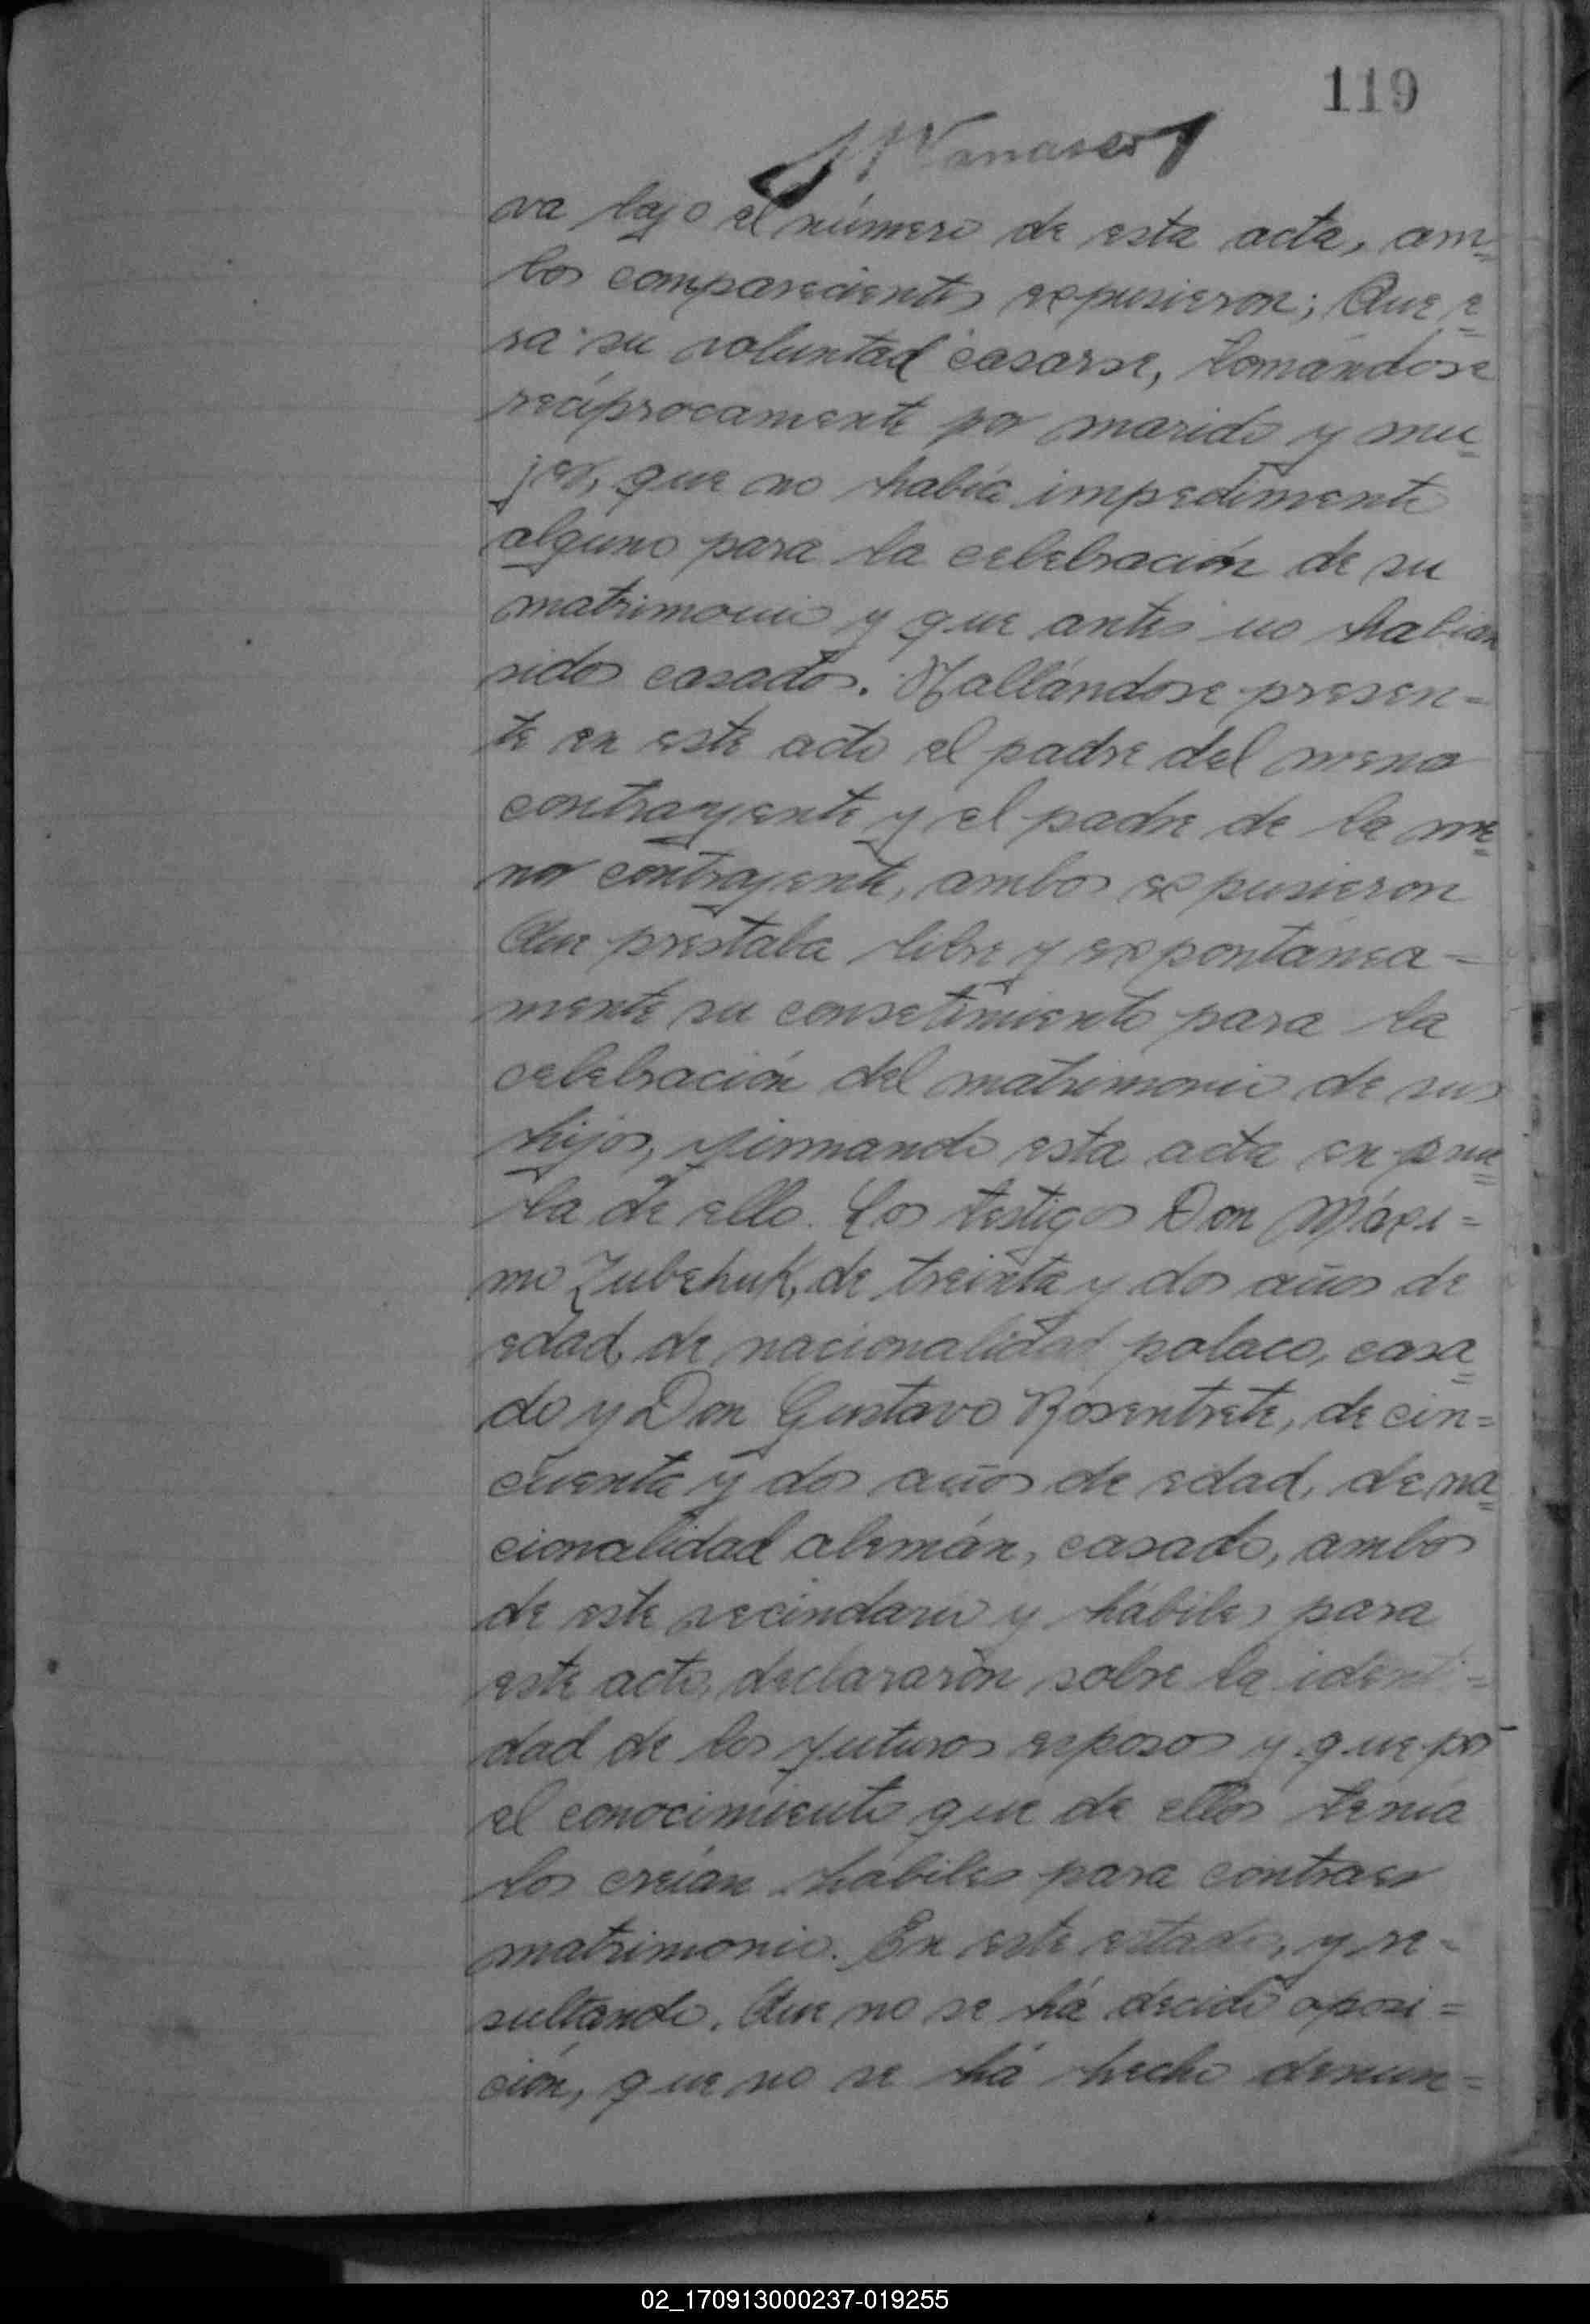 119
va bajo el número de esta acta, am=
bos comparecientes expusieron; Que e=
ra su voluntad casarse, tomándose
recíprocamente por marido y mu=
jer, que no había impedimento
alguno para la celebración de su
matrimonio y que antes no habían
sidos casados. Hallándose presen=
te en este acto el padre del menor
contrayente y el padre de la me=
nor contrayente, ambos expusieron
Que prestaba libre y expontánea=
mente su consetimiento para la
celebración del matrimonio de sus
hijos, firmando esta acta en prue=
ba de ello. Los testigos Don Máxi=
mo Zubchuk, de treinta y dos años de
edad, de nacionalidad polaco, casa=
do y Don Gustavo Rosentrete, de cin=
cuenta y dos años de edad, de na=
cionalidad alemán, casado, ambos
de este vecindario y hábiles para
este acto, declararón sobre la identi=
dad de los futuros esposos y que por
el conocimiento que de ellos tenía
los creían hábiles para contraer
matrimonio. En este estado, y re=
sultando. Que no se há decido oposi=
ción, que no se há hecho denun=
02_170913000237-019255